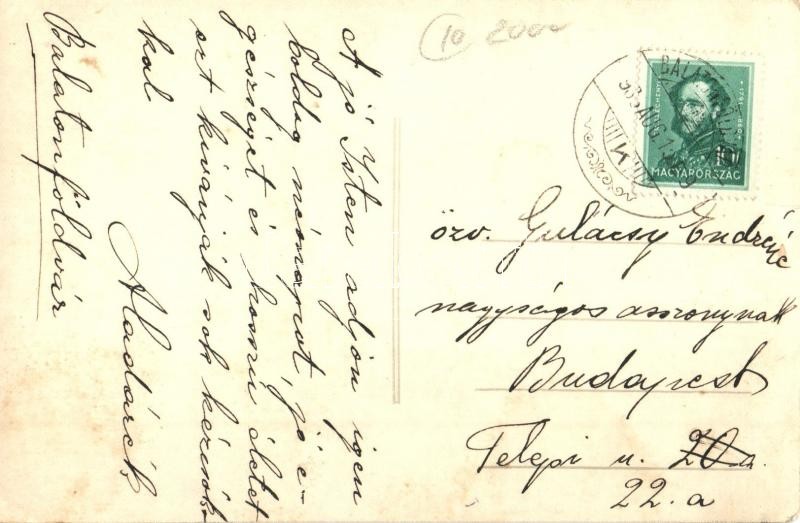 10 2000
BALATONFÖLDVÁR
933 AUG 1
SZÉCHENYI
MAGYARORSZÁG
A jó Isten adjon igen
boldog névnapot, jó e-
gészséget és hosszú életet
ezt kívánják sok kézcsók-
kal
Aladárék
Balatonföldvár
özv. Gulácsy Endréné
nagyságos asszonynak
Budapest
Telepi u. 20 a.
22.a